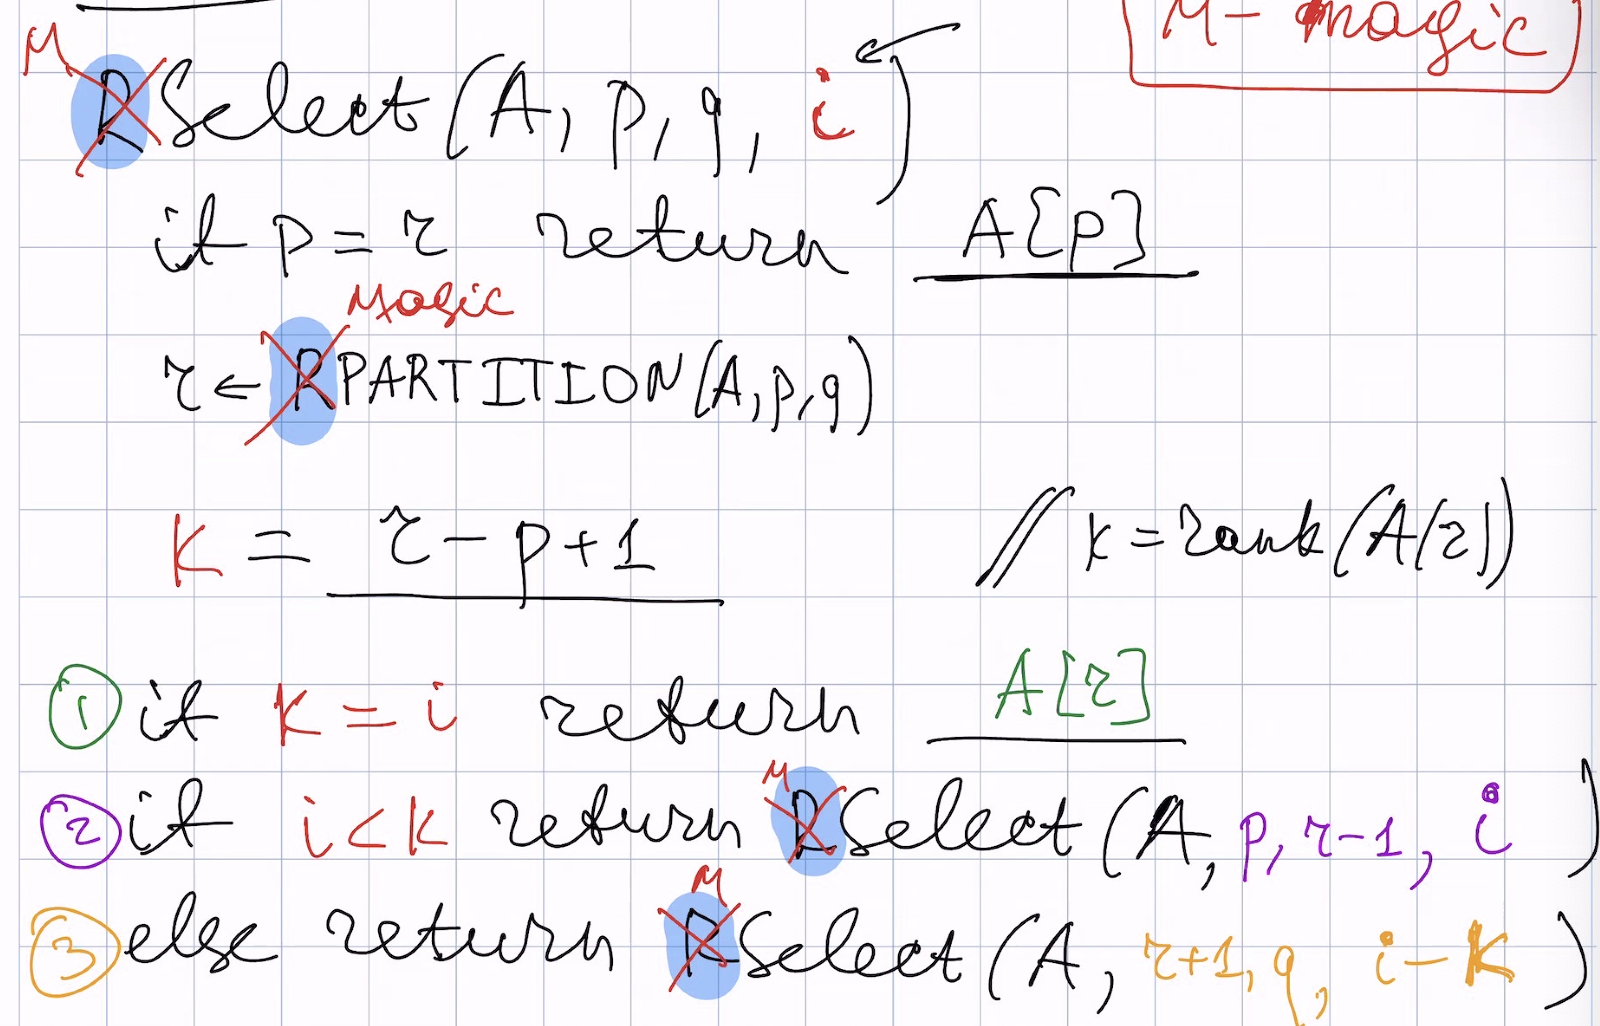 M - magic
M
RSelect(A, p, q, i)
if p = r return A[p]
Magic
r ← RPARTITION(A, p, q)
k = r - p + 1 // k = rank(A[r])
① if k = i return A[r]
M
② if i < k return RSelect(A, p, r-1, i)
M
③ else return RSelect(A, r+1, q, i-k)